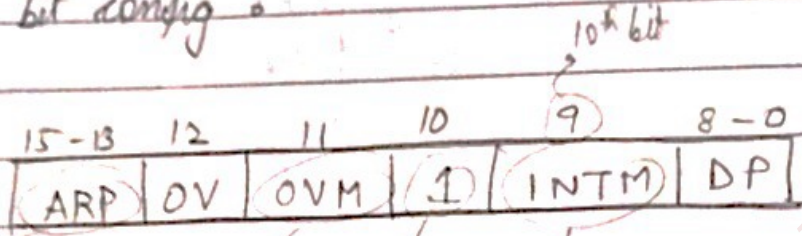 bit config :
10th bit
15-13 12 11 10 9 8-0
ARP OV OVM 1 INTM DP